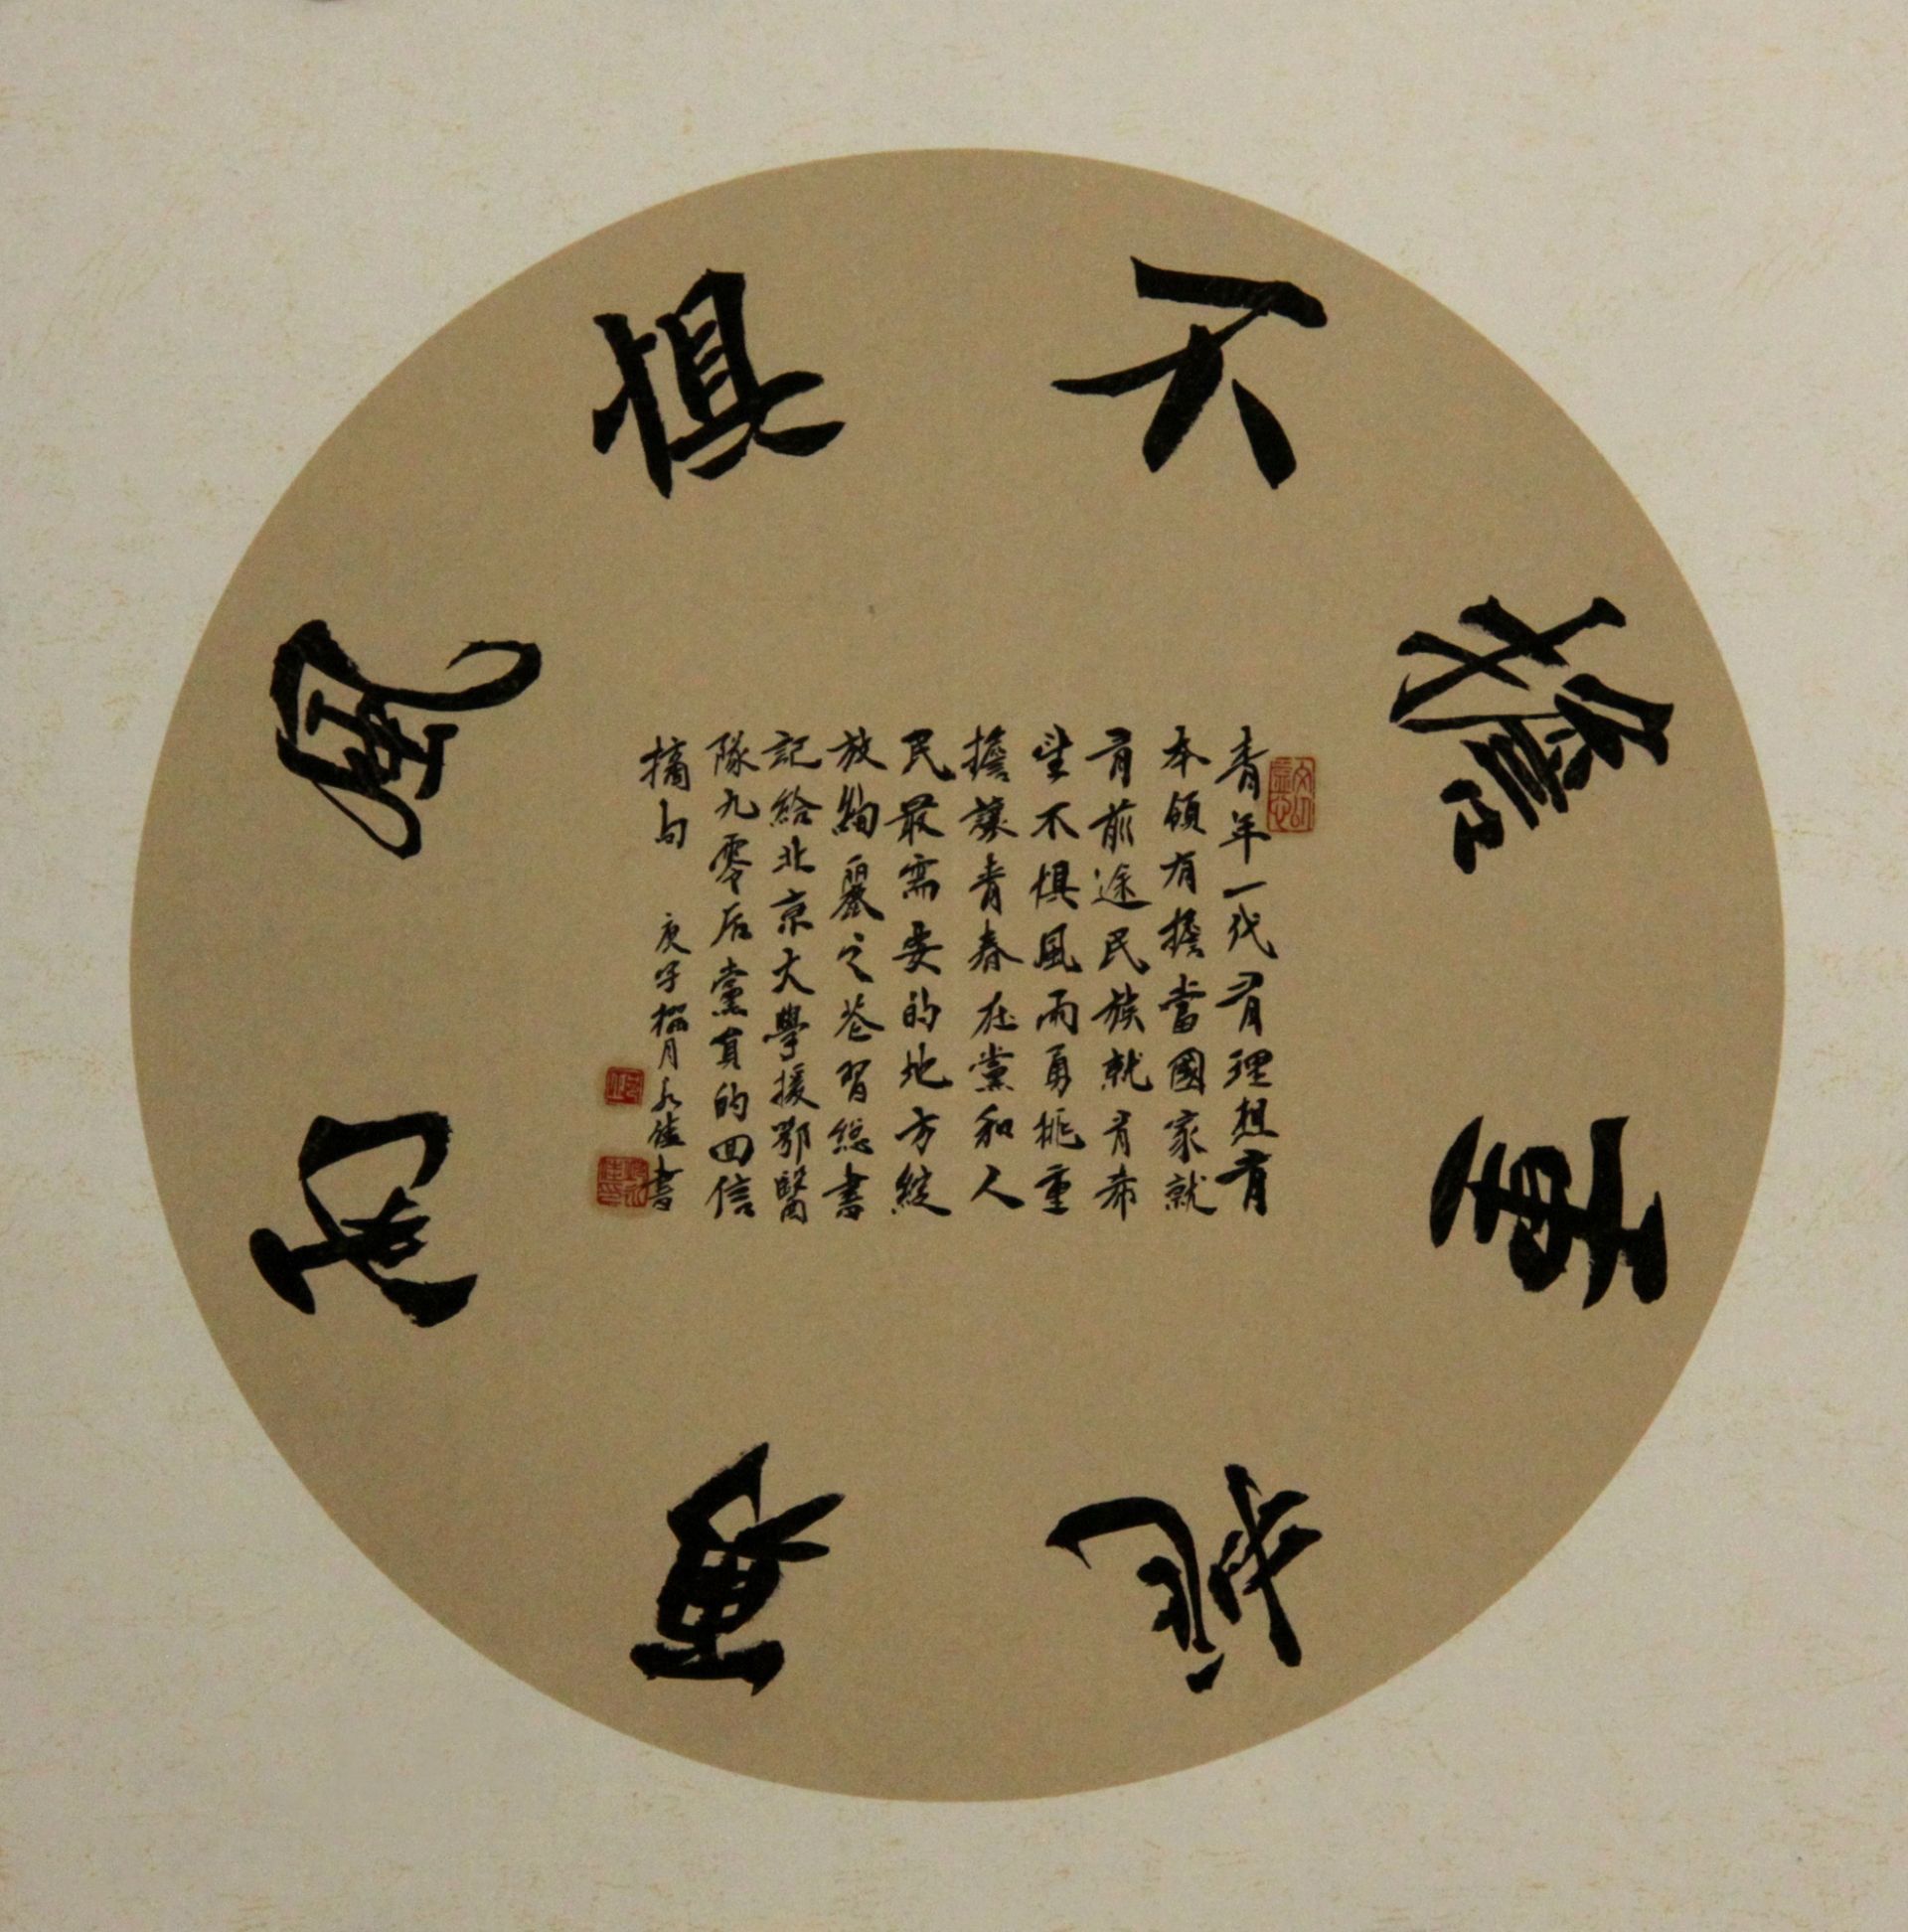 不懼風雨勇挑重擔
青年一代有理想有
本領有擔當國家就
有前途民族就有希
望不懼風雨勇挑重
擔讓青春在黨和人
民最需要的地方綻
放絢麗之花習總書
記給北京大學援鄂醫
隊九零后黨員的回信
摘句 庚子榴月永佳書